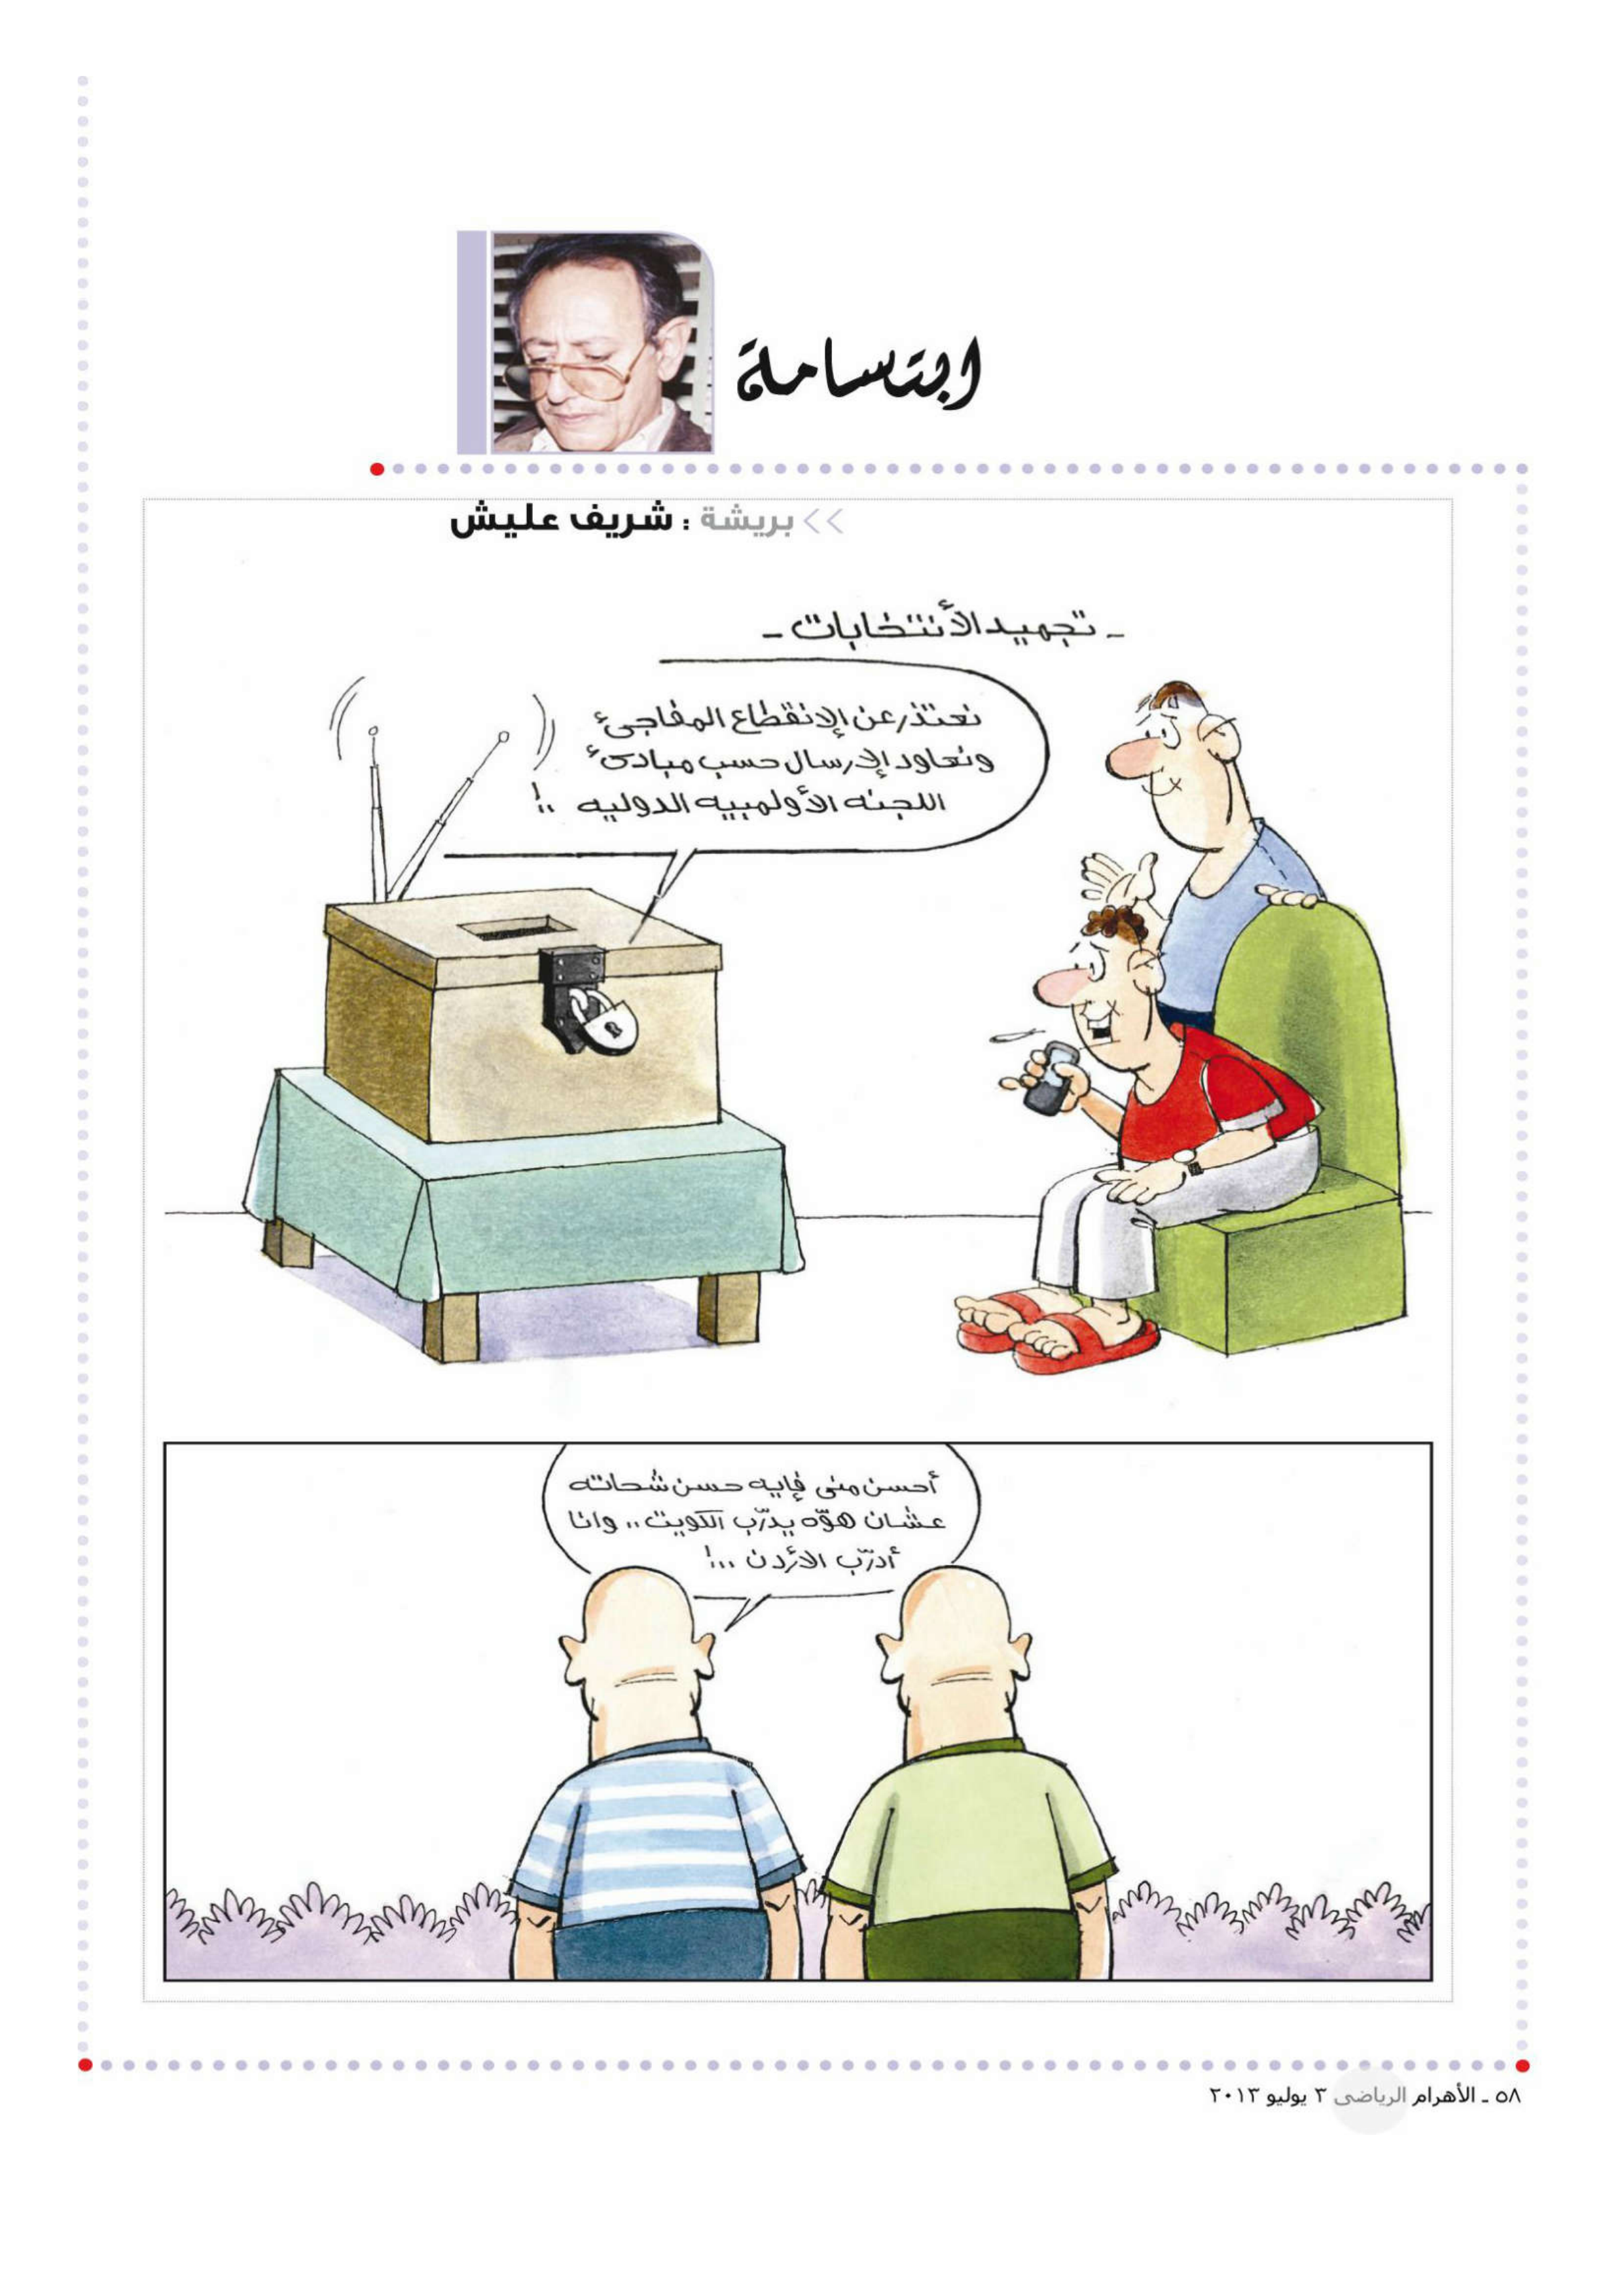 ابتسامة
>> بريشة : شريف عليش
- تجميد الأنتخابات -
نعتذر عن الإنقطاع المفاجئ
ونعاود الإرسال حسب مبادئ
اللجنه الأولمبيه الدوليه ..!
أحسن منى فإيه حسن شحاته
عشان هوّه يدرّب الكويت .. وانا
أدرّب الأردن ...!
٥٨ - الأهرام الرياضى ٣ يوليو ٢٠١٣